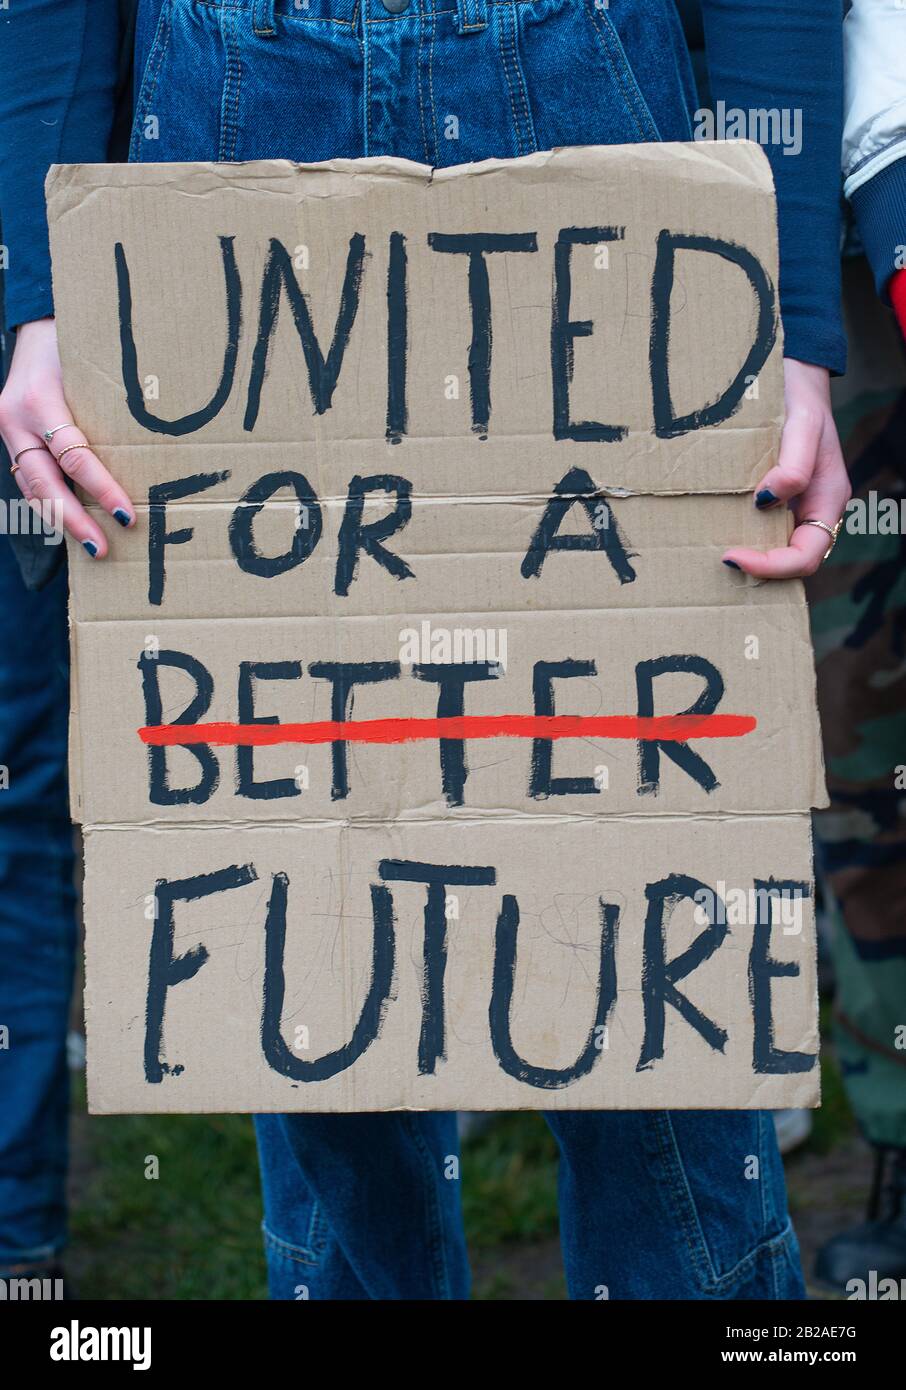 UNITED
FOR A
BETTER
FUTURE
alamy
alamy
Image ID: 2B2AE7G
www.alamy.com